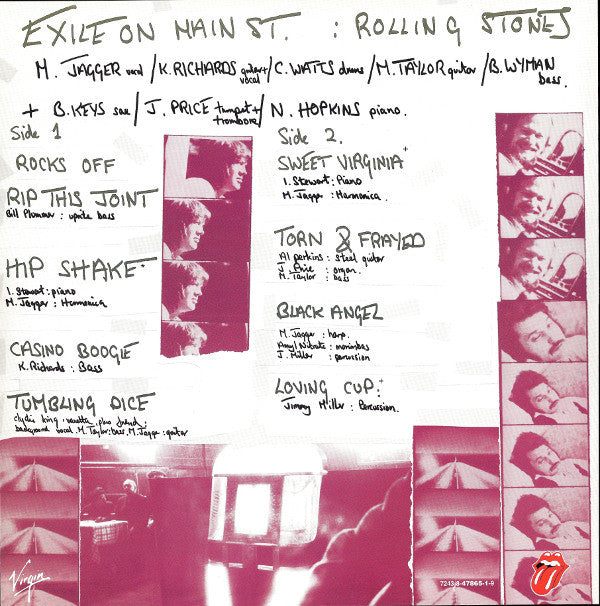 EXILE ON MAIN ST. : ROLLING STONES
M. JAGGER vocal / K. RICHARDS guitar + vocal / C. WATTS drums / M. TAYLOR guitar / B. WYMAN bass.
+ B. KEYS sax / J. PRICE trumpet + trombone / N. HOPKINS piano.
Side 1
ROCKS OFF
RIP THIS JOINT
Bill Plummer : uprite bass
HIP SHAKE
I. Stewart : piano
M. Jagger : Harmonica
CASINO BOOGIE
K. Richards : Bass
TUMBLING DICE
clydie king . vanetta . plus friend :
background vocal. M. Taylor : bass. M. Jagger : guitar
Side 2.
SWEET VIRGINIA +
I. Stewart : Piano
M. Jagger : Harmonica .
TORN & FRAYED
Al perkins : steel guitar
J. Price : organ.
M. Taylor : bass
BLACK ANGEL
M. Jagger : harp.
Amyl Nitrate : marimbas
J. Miller : percussion
LOVING CUP :
Jimmy Miller : Percussion.
Virgin
7243-8-47865-1-9